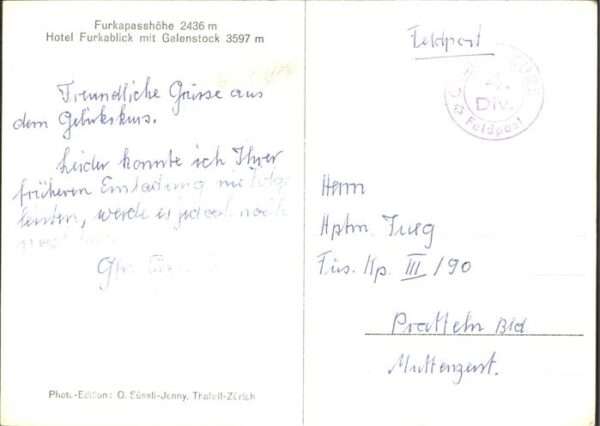 Furkapasshöhe 2436 m
Hotel Furkablick mit Galenstock 3597 m
Freundliche Grüsse aus
dem Gebirgskurs.
Leider konnte ich Ihrer
früheren Einladung nie Folge
leisten, werde es jedoch noch
Phot.-Edition: O. Süssli-Jenny, Thalwil-Zürich
Feldpost
4.
Div.
Feldpost
Herrn
Hptm.
Füs. Kp. III/90
Pratteln Bld
Muttenzerst.